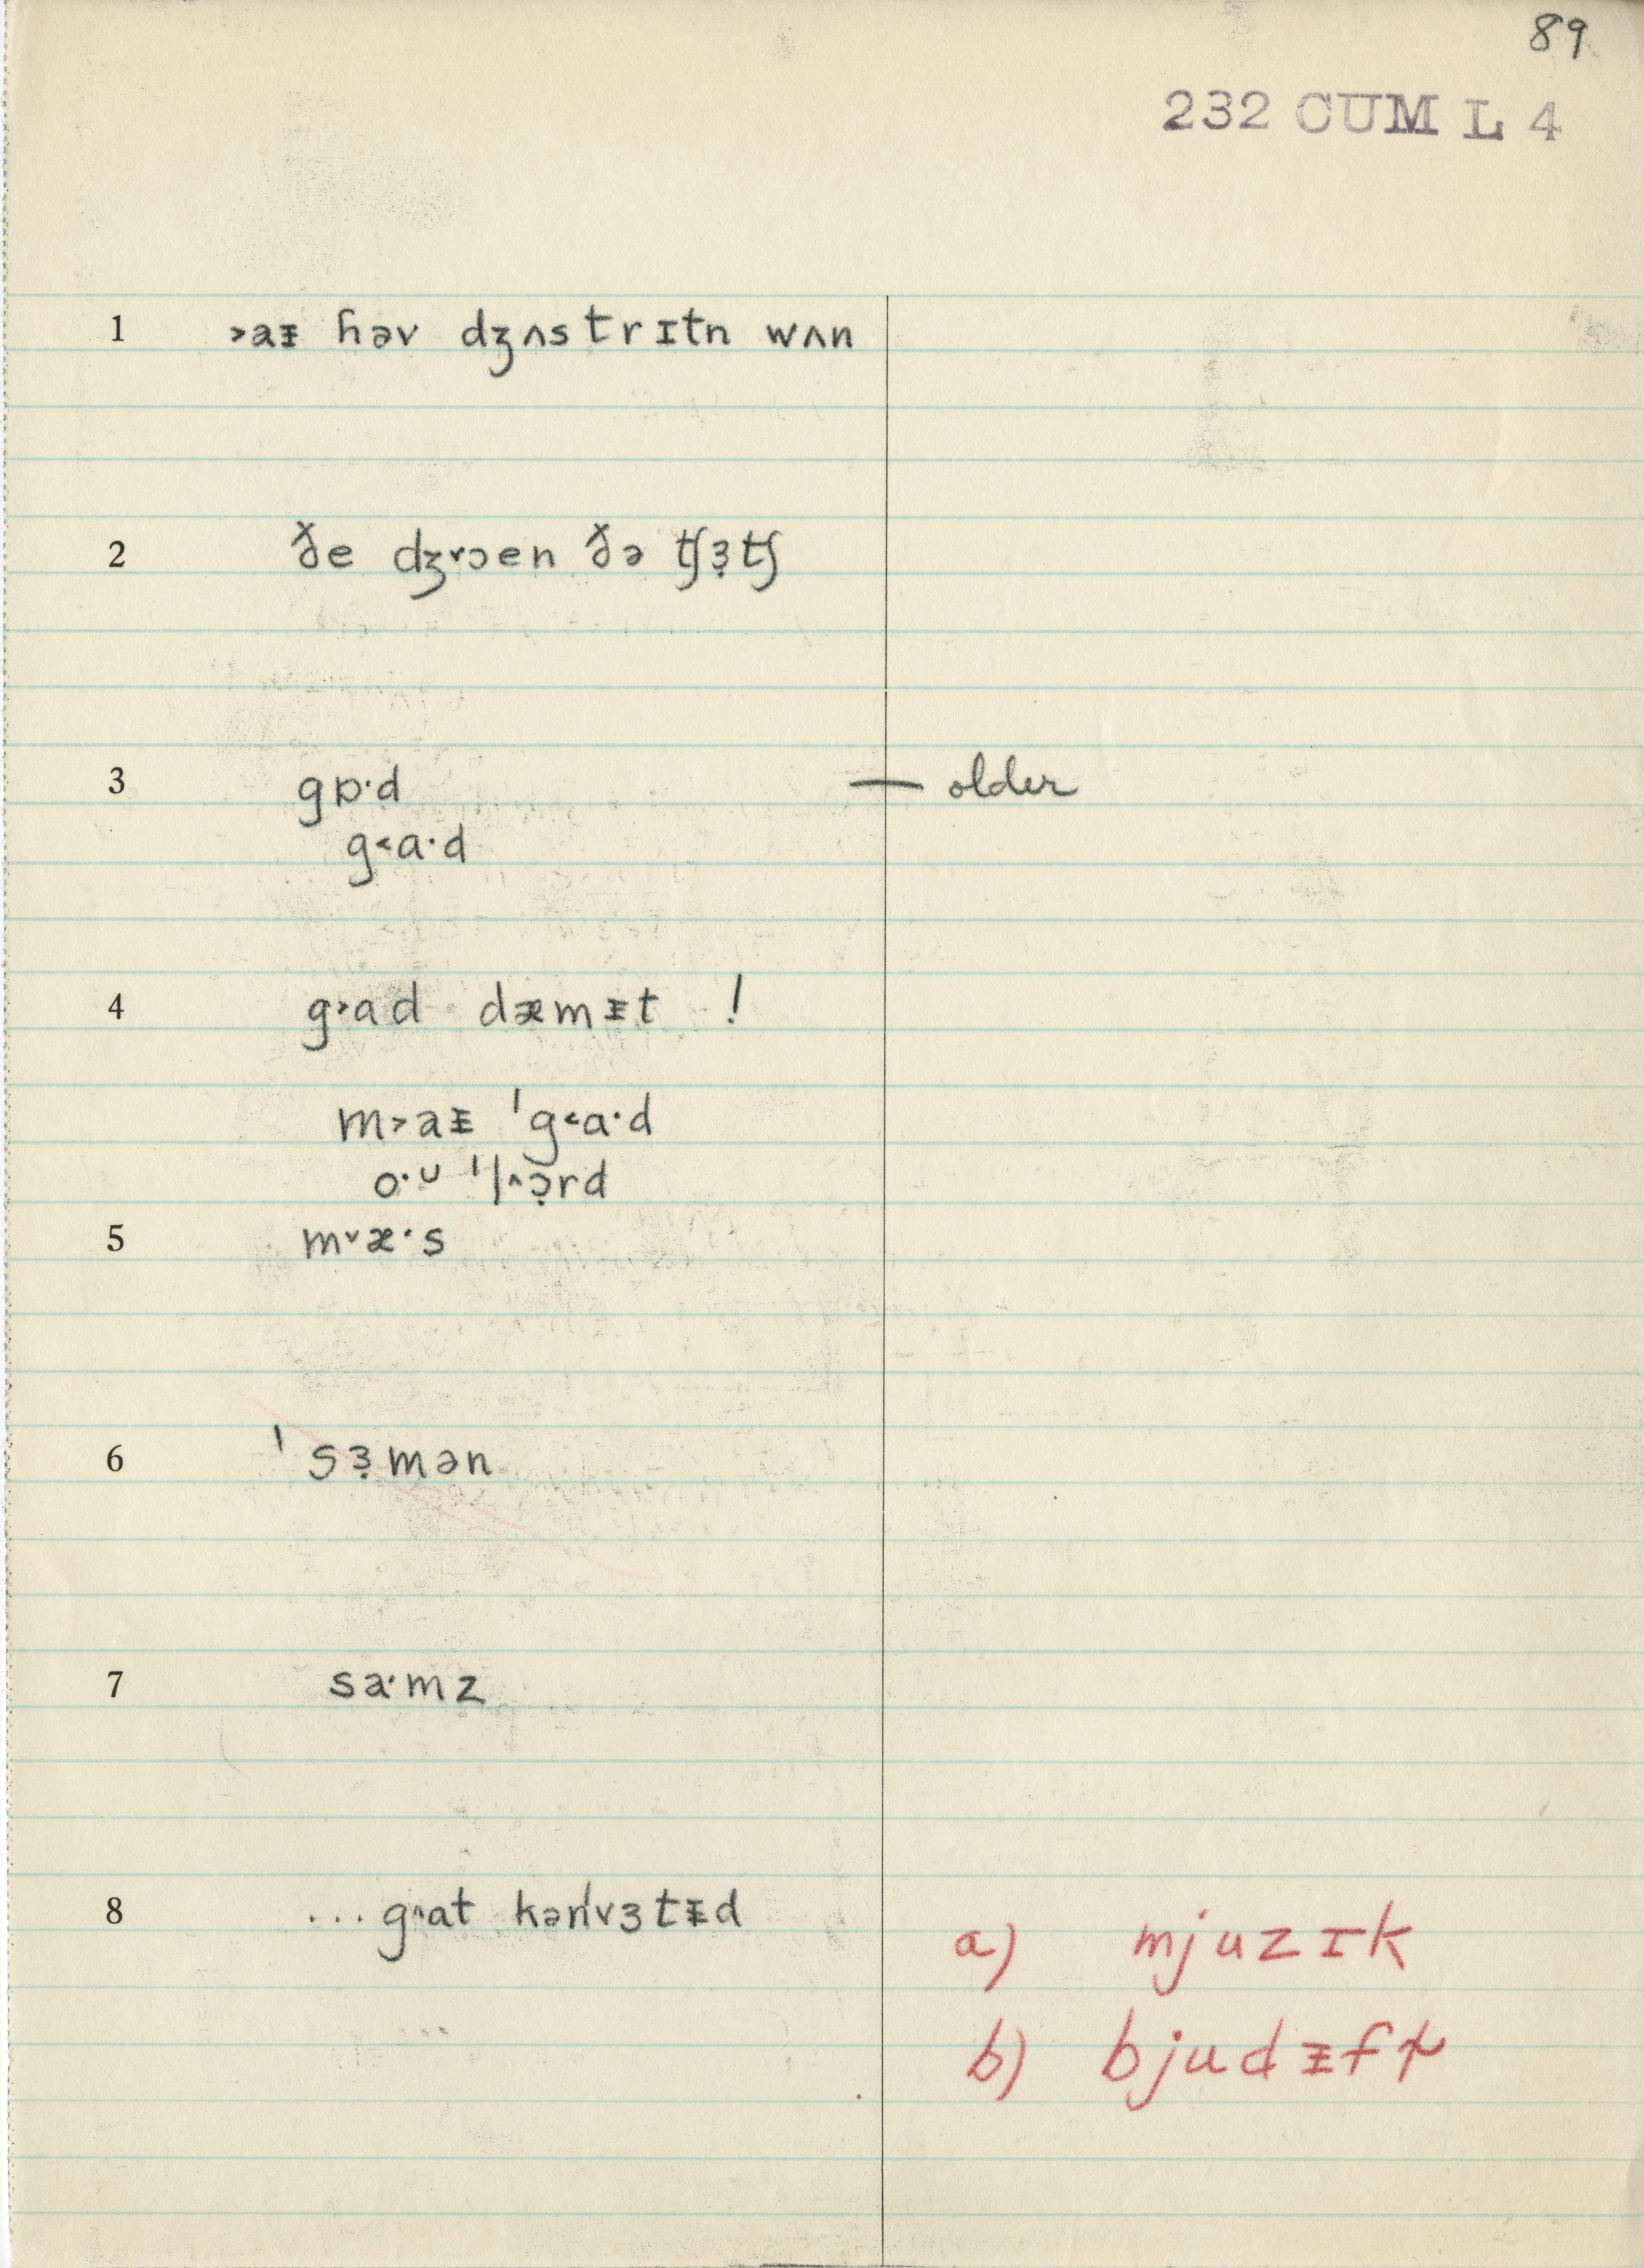 89
232 CUM L 4
1 ˃aᵻ ɦəv dʒʌstrɪtn wʌn
2 ðe dʒ˅ɔen ðə tʃɜ̣tʃ
3 gɒ·d — older
g˂ɑ·d
4 g˃ɑd dæmᵻt !
m˃aᵻ ˈg˂ɑ·d
o·ᴜ ˈl˄ɔ̣rd
5 m˅æ·s
6 ˈsɜ̣mən
7 sa·mz
8 ... g˄ɑt kənˈvɜtᵻd
a) mjuzɪk
b) bjudᵻfḷ